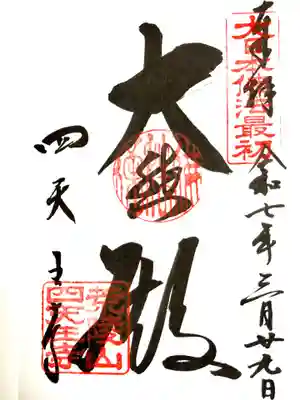 奉拝 令和七年三月廿九日
大日本佛法最初
大悲殿
四天王寺
荒陵山
四天王寺